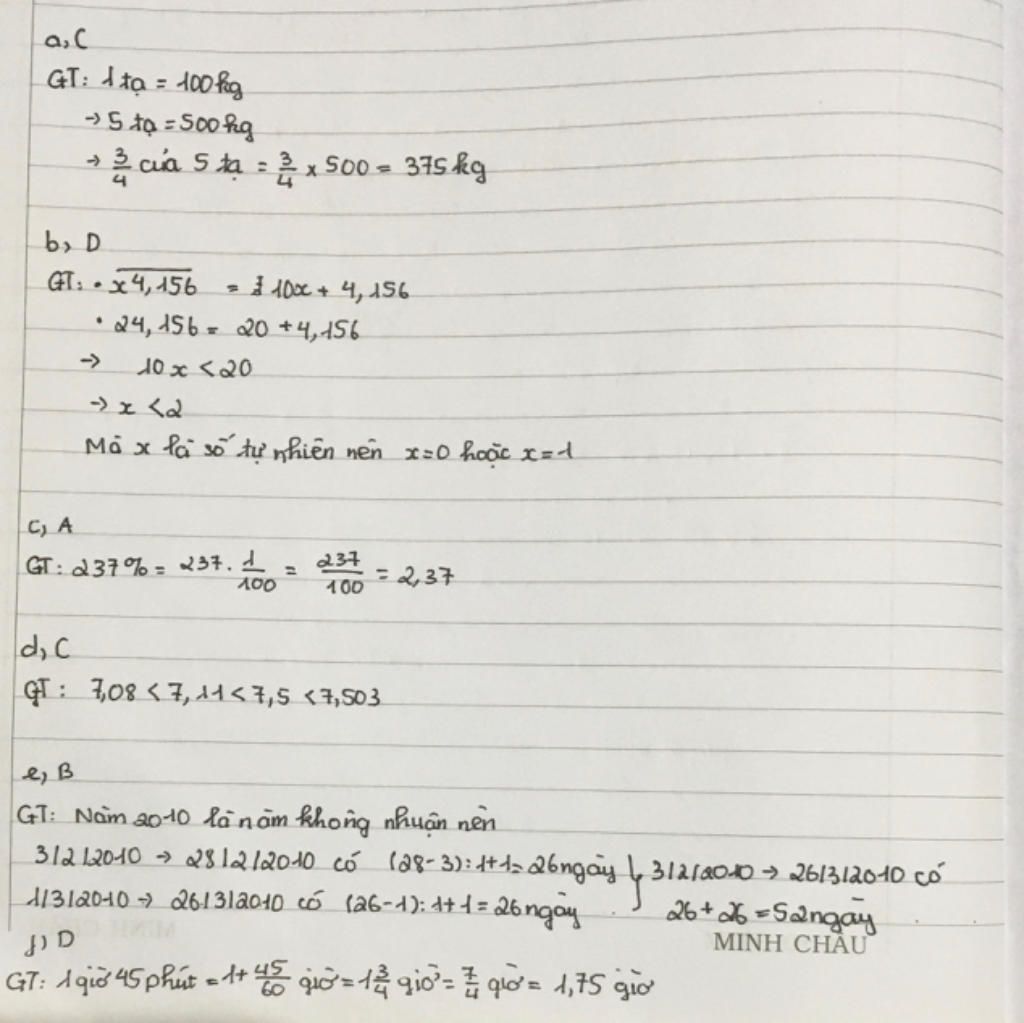 a, C
GT: 1 tạ = 100kg
→ 5 tạ = 500kg
→ 3/4 của 5 tạ = 3/4 × 500 = 375kg
b, D
GT: • x4,156 = 10x + 4,156
• 24,156 = 20 + 4,156
→ 10x < 20
→ x < 2
Mà x là số tự nhiên nên x=0 hoặc x=1
c, A
GT: 237% = 237 . 1/100 = 237/100 = 2,37
d, C
GT: 7,08 < 7,11 < 7,5 < 7,503
e, B
GT: Năm 2010 là năm không nhuận nên
3/2/2010 → 28/2/2010 có (28-3):1+1=26ngày } 3/2/2010 → 26/3/2010 có
1/3/2010 → 26/3/2010 có (26-1):1+1=26ngày 26+26=52ngày
MINH CHÂU
f, D
GT: 1giờ 45phút = 1+45/60 giờ = 1 3/4 giờ = 7/4 giờ = 1,75 giờ